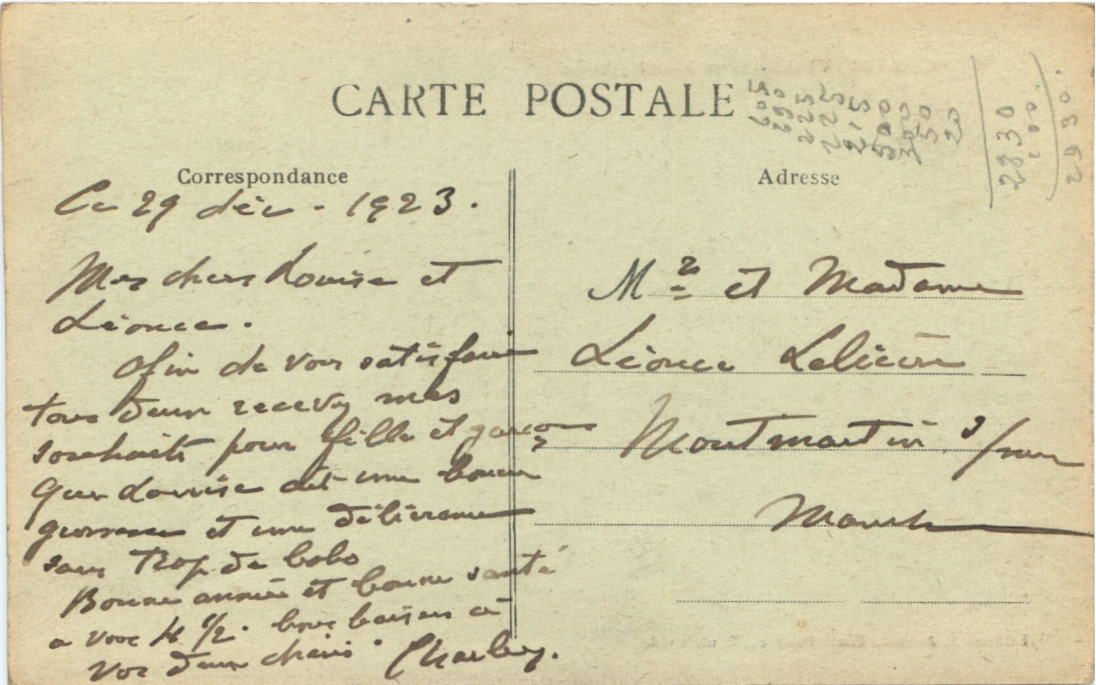 CARTE POSTALE
Correspondance
Ce 29 déc - 1923.
Mes chers Louise et
Léonce.
Afin de vous satisfaire
tous deux recevez mes
souhaits pour fille et garçon
que Louise ait une bonne
grossesse et une délivrance
sans trop de bobo
Bonne année et bonne santé
a vous 4 ½. bons baisers à
vos deux chéris Charley.
Adresse
Mr et Madame
Léonce
Montmartin s/mer
Manche
2830
2930.